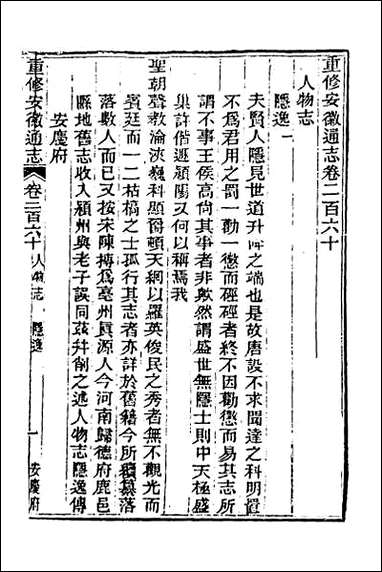 重修安徽通志卷二百六十
人物志
隱逸一
夫賢人隱見世道升降之端也是故唐設不求聞達之科明置
不爲君用之罰一勸一懲而硜硜者終不因勸懲而易其志所
謂不事王侯高尚其事者非歟然謂盛世無隱士則中天極盛
巢許偕遯潁陽又何以稱焉我
聖朝聲教淪浹巍科顯爵頓天網以羅英俊民之秀者無不觀光而
賓廷而一二枯槁之士孤行其志者亦詳於舊籍今所纂落
落數人而已又按宋陳摶爲亳州真源人今河南歸德府鹿邑
縣地舊志收入潁州與老子誤同茲幷削之述人物志隱逸傳
安慶府
重修安徽通志
卷二百六十
人物志
隱逸
一
安慶府